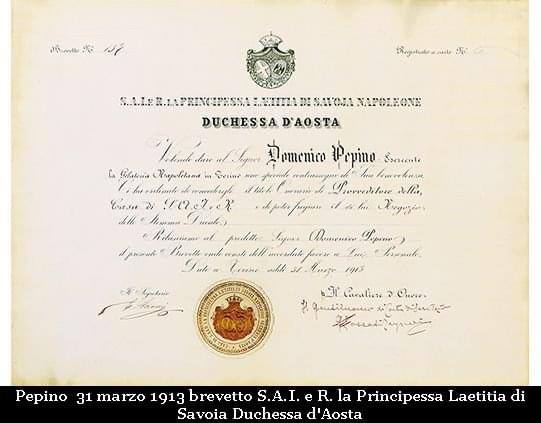 Brevetto N. 187
Registrato a carte N.
S.A.I. e R. LA PRINCIPESSA LÆTITIA DI SAVOJA NAPOLEONE
DUCHESSA D'AOSTA
Volendo dare al Signor Domenico Pepino Esercente
la Gelateria Napoletana in Torino uno speciale contrassegno di Sua benevolenza
Ci ha ordinato di concedergli il titolo Onorario di Provveditore della
Casa di S.A.I. e R. e di poter fregiare il di lui Negozio
dello Stemma Ducale.
Rilasciamo al predetto Signor Domenico Pepino
il presente Brevetto onde consti dell'accordato favore a Lui Personale.
Dato a Torino addì 31 Marzo 1913
Il Segretario
Il Cavaliere d'Onore
Il Gentiluomo di
Pepino 31 marzo 1913 brevetto S.A.I. e R. la Principessa Laetitia di
Savoia Duchessa d'Aosta